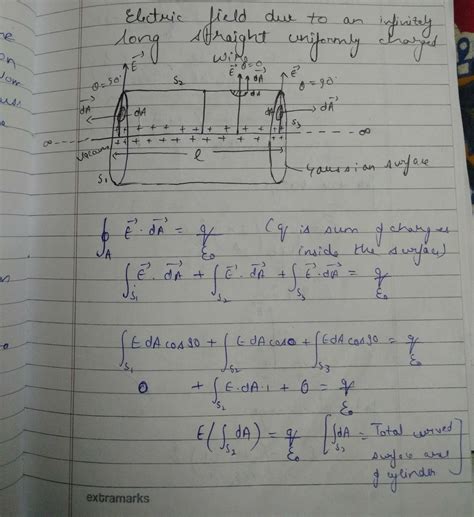 Electric field due to an infinitely
long straight uniformly charged
wire
E θ=0 E
θ=90° S2 dA θ=90°
dA dA dA dA dA
∞ + + + + + + + + + + + + S3 ∞
vacuum l
S1 Gaussian surface
∮A E·dA = q/ε0 (q is sum of charges
inside the surface)
∫S1 E·dA + ∫S2 E·dA + ∫S3 E·dA = q/ε0
∫S1 E dA cos 90 + ∫S2 E dA cos0 + ∫S3 E dA cos 90 = q/ε0
0 + ∫S2 E·dA·1 + 0 = q/ε0
E(∫S2 dA) = q/ε0 [∫S2 dA = Total curved
surface area
of cylinder]
extramarks